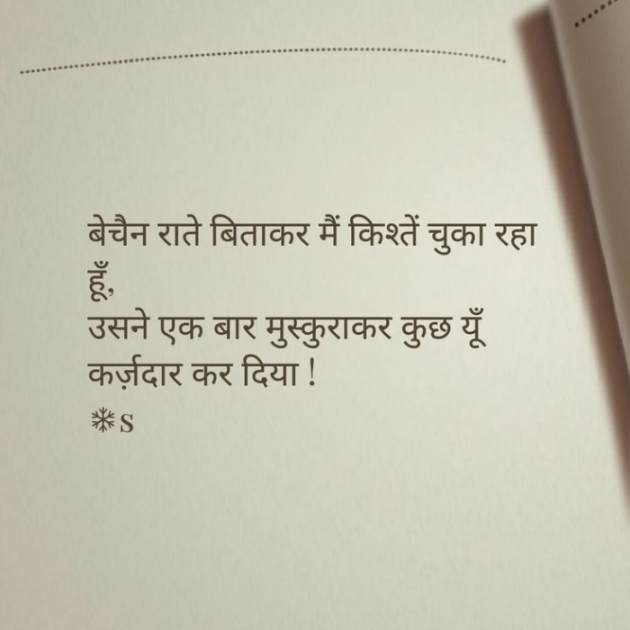 बेचैन राते बिताकर मैं किश्तें चुका रहा
हूँ,
उसने एक बार मुस्कुराकर कुछ यूँ
कर्ज़दार कर दिया !
❄s